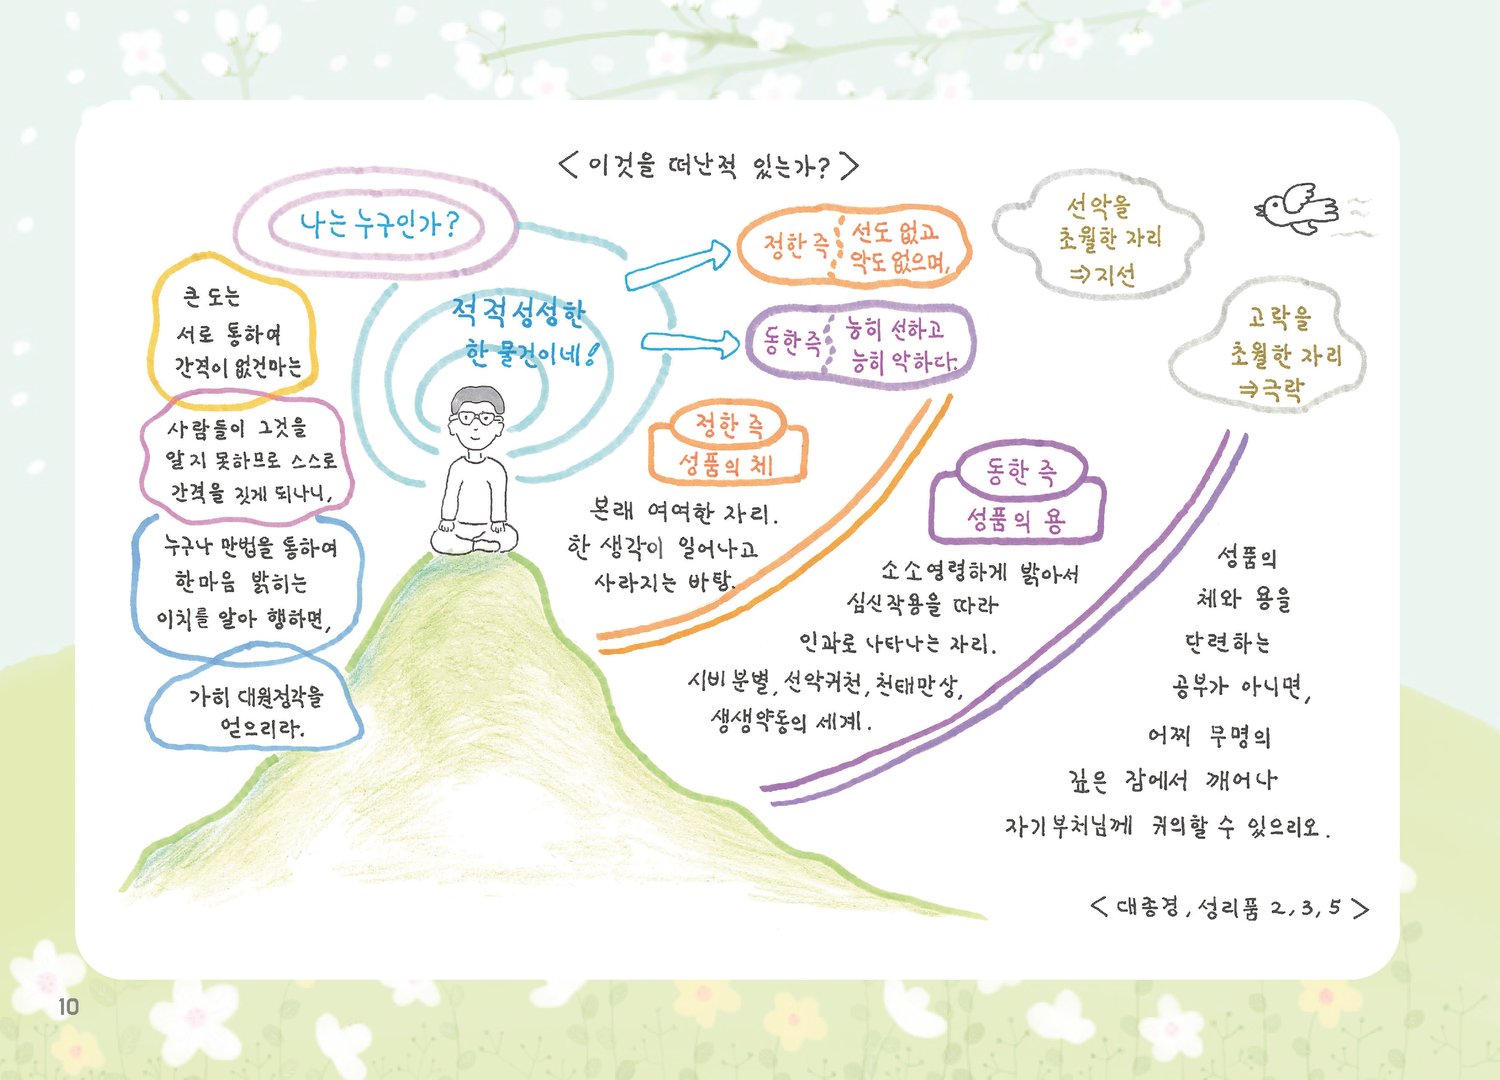 <이것을 떠난적 있는가?>
나는 누구인가?
적적성성한
한 물건이네!
큰 도는
서로 통하여
간격이 없건마는
사람들이 그것을
알지 못하므로 스스로
간격을 짓게 되나니,
누구나 만법을 통하여
한마음 밝히는
이치를 알아 행하면,
가히 대원정각을
얻으리라.
정한 즉
선도 없고
악도 없으며,
동한 즉
능히 선하고
능히 악하다.
선악을
초월한 자리
⇒지선
고락을
초월한 자리
⇒극락
정한 즉
성품의 체
본래 여여한 자리.
한 생각이 일어나고
사라지는 바탕.
동한 즉
성품의 용
소소영령하게 밝아서
심신작용을 따라
인과로 나타나는 자리.
시비분별, 선악귀천, 천태만상,
생생약동의 세계.
성품의
체와 용을
단련하는
공부가 아니면,
어찌 무명의
깊은 잠에서 깨어나
자기부처님께 귀의할 수 있으리오.
<대종경, 성리품 2, 3, 5>
10